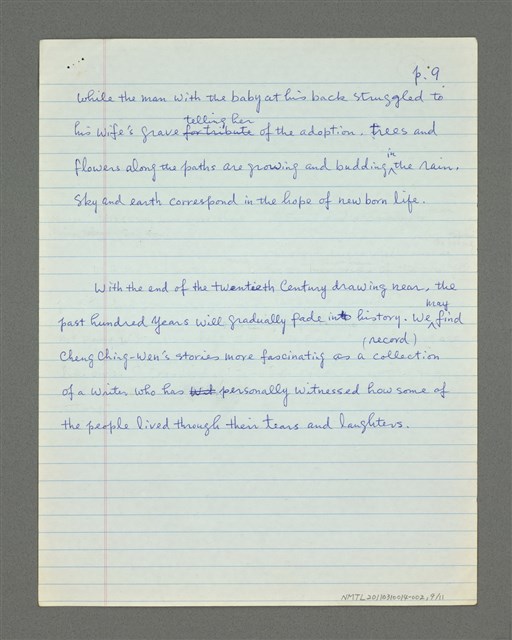 p. 9
while the man with the baby at his back struggled to
telling her
his wife's grave for tribute of the adoption. trees and
in
flowers along the paths are growing and budding the rain.
Sky and earth correspond in the hope of new born life.
With the end of the twentieth Century drawing near, the
may
past hundred years will gradually fade into history. We find
(record)
Cheng Ching-Wen's stories more fascinating as a collection
of a writer who has personally witnessed how some of
the people lived through their tears and laughters.
NMTL20110310014-002, 9/11